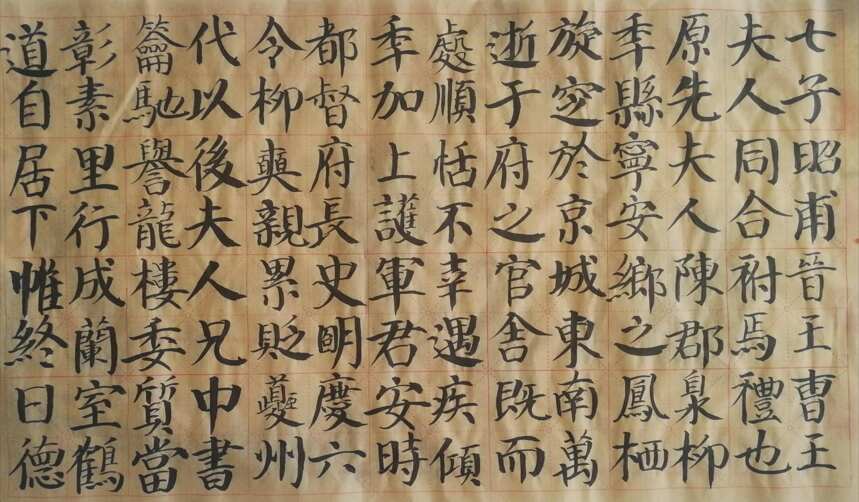 七子昭甫晉王曹王
夫人同合祔焉禮也
原先夫人陳郡臮柳
秊縣寧安鄉之鳳栖
旋窆於京城東南萬
逝于府之官舍既而
處順恬不幸遇疾傾
秊加上護軍君安時
都督府長史明慶六
令柳奭親累貶夔州
代以後夫人兄中書
籥馳譽龍樓委質當
彰素里行成蘭室鶴
道自居下帷終日德